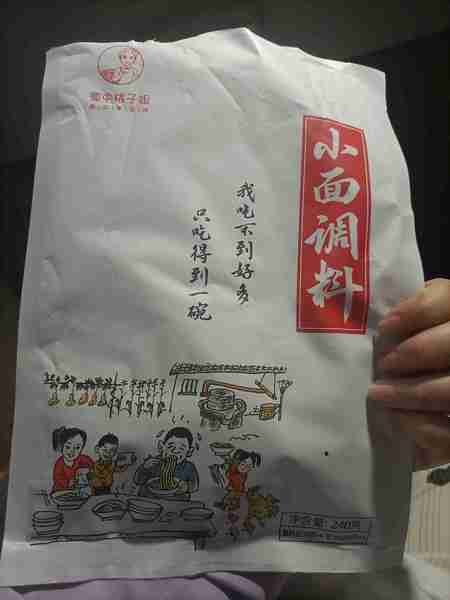 小面调料
我吃不到好多
只吃得到一碗
净含量:240克